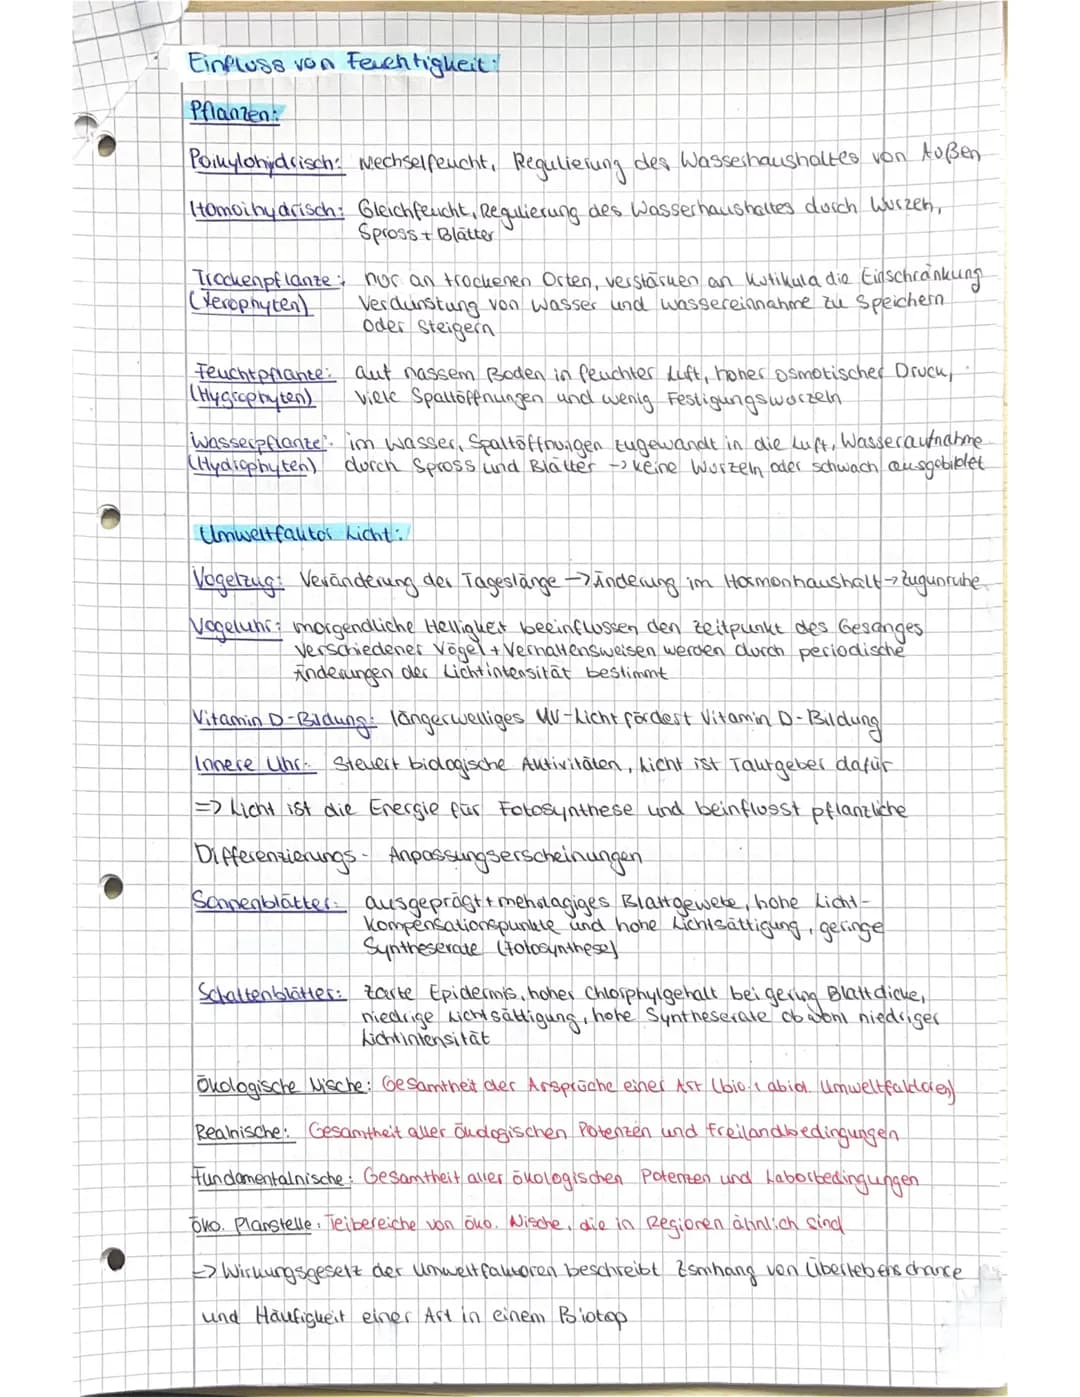 Einfluss von Feuchtigkeit:
Pflanzen:
Poikylohydrisch: Wechselfeucht, Regulierung des Wasserhaushaltes von Außen
Homoihydrisch: Gleichfeucht, Regulierung des Wasserhaushaltes durch Wurzeln,
Spross + Blätter
Trockenpflanze: nur an trockenen Orten, verstärken an Kutikula die Einschränkung
(Xerophyten) Verdunstung von Wasser und Wassereinnahme zu Speichern
oder steigern
Feuchtpflanze: auf nassem Boden in feuchter Luft, hoher osmotischer Druck,
(Hygrophyten) viele Spaltöffnungen und wenig Festigungswurzeln
Wasserpflanze: im Wasser, Spaltöffnungen zugewandt in die Luft, Wasseraufnahme
(Hydrophyten) durch Spross und Blätter -> keine Wurzeln oder schwach ausgebiblet
Umweltfaktor Licht:
Vogelzug: Veränderung der Tageslänge -> Änderung im Hormonhaushalt -> Zugunruhe
Vogeluhr: morgendliche Helligkeit beeinflussen den Zeitpunkt des Gesanges
verschiedener Vögel + Verhaltensweisen werden durch periodische
Änderungen der Lichtintensität bestimmt
Vitamin D-Bildung: längerwelliges UV-Licht fördert Vitamin D-Bildung
Innere Uhr: Steuert biologische Aktivitäten, Licht ist Taktgeber dafür
=> Licht ist die Energie für Fotosynthese und beinflusst pflanzliche
Differenzierungs- Anpassungserscheinungen
Sonnenblätter: ausgeprägt + mehrlagiges Blattgewebe, hohe Licht-
kompensationspunkte und hohe Lichtsättigung, geringe
Syntheserate (Fotosynthese)
Schattenblätter: zarte Epidermis, hoher Chlorphylgehalt bei gering Blattdicke,
niedrige Lichtsättigung, hohe Syntheserate obwohl niedriger
Lichtintensität
Ökologische Nische: Gesamtheit der Ansprüche einer Art (bio. + abiot. Umweltfaktoren)
Realnische: Gesamtheit aller ökologischen Potenzen und Freilandbedingungen
Fundamentalnische: Gesamtheit aller ökologischen Potenzen und Laborbedingungen
Öko. Planstelle: Teibereiche von öko. Nische, die in Regionen ähnlich sind
=> Wirkungsgesetz der Umweltfaktoren beschreibt Zsmhang von Überlebenschance
und Häufigkeit einer Art in einem Biotop